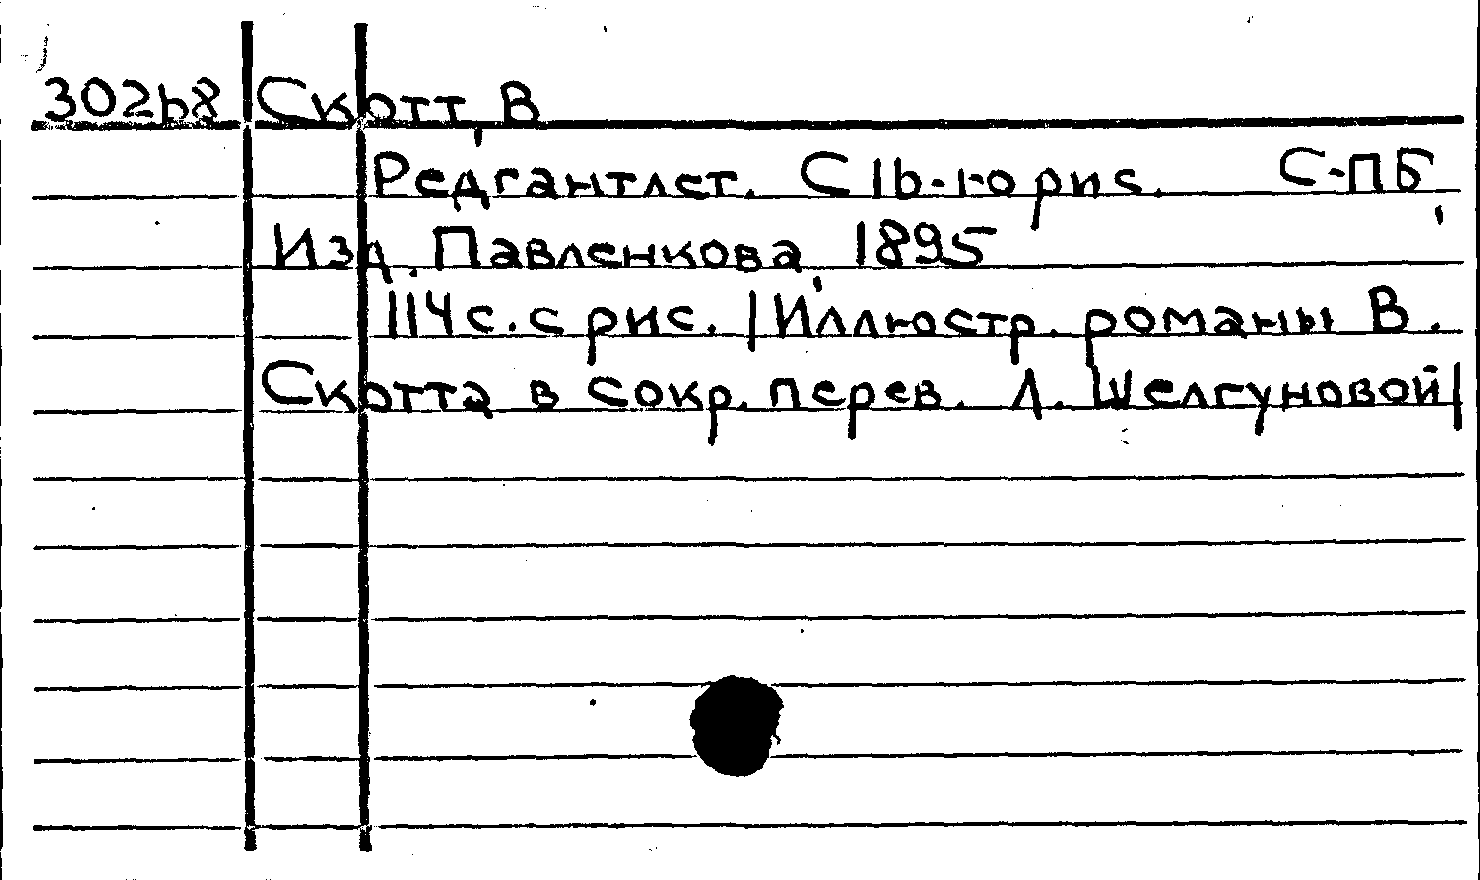 30268 Скотт, В
Редгантлет. С 16-ю рис. С-ПБ,
Изд. Павленкова, 1895
114 с. с рис. |Иллюстр. романы В.
Скотта в сокр. перев. Л. Шелгуновой|